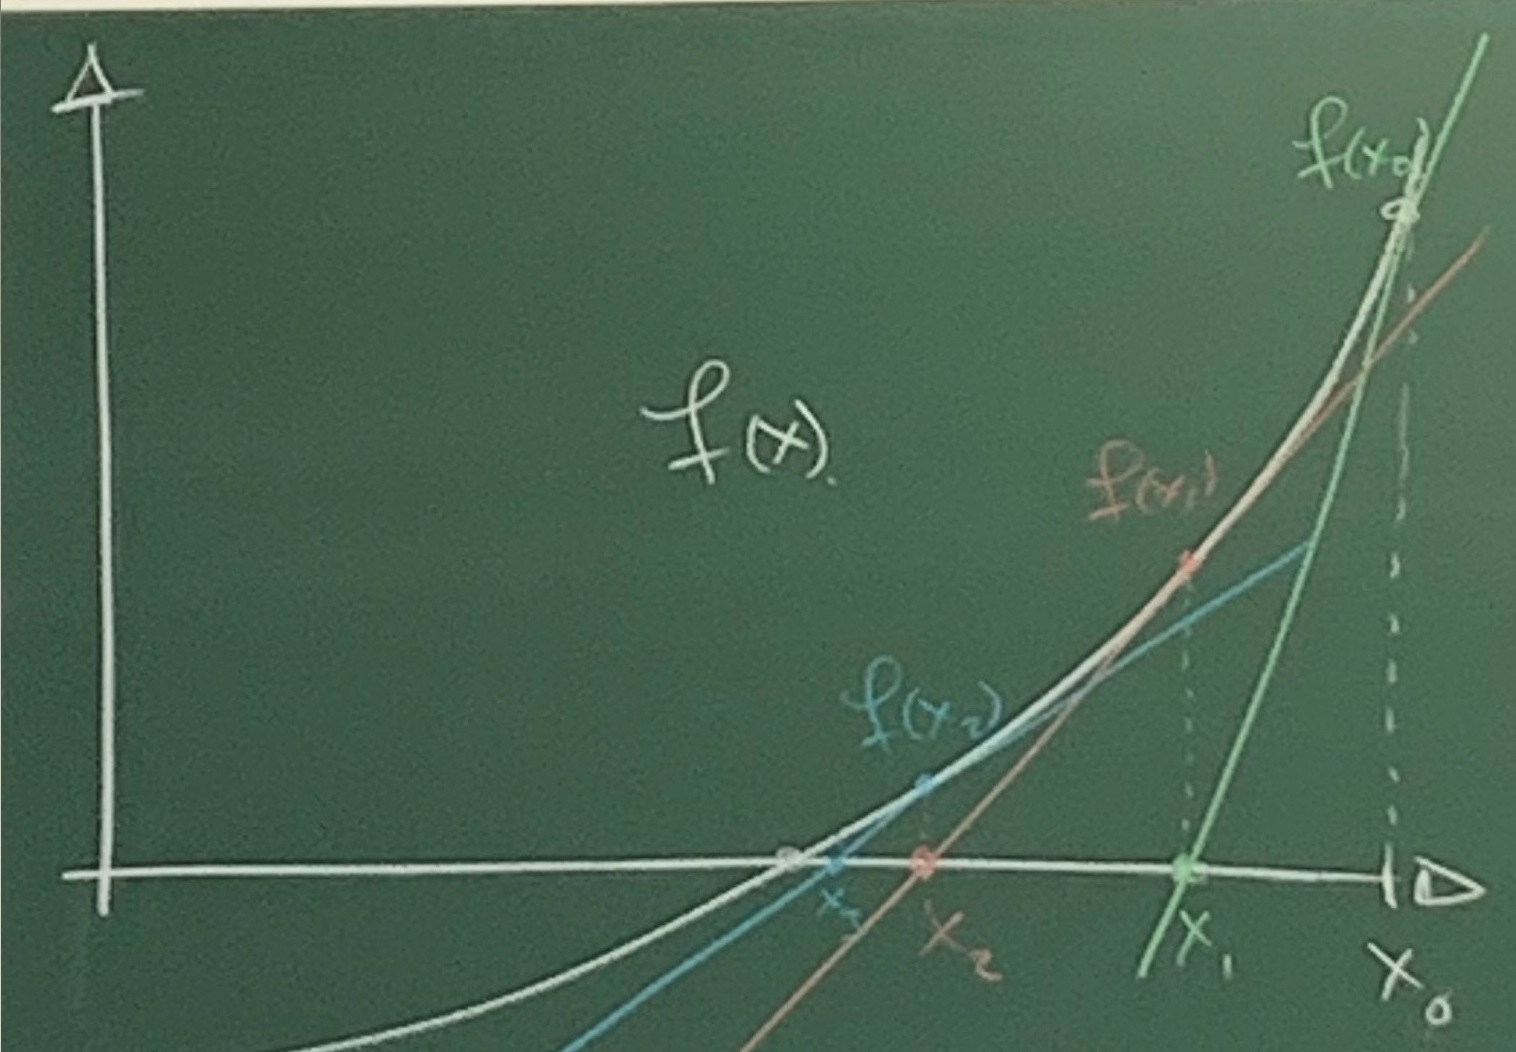 f(x₀)
f(x).
f(x₁)
f(x₂)
x₃
x₂
x₁
x₀